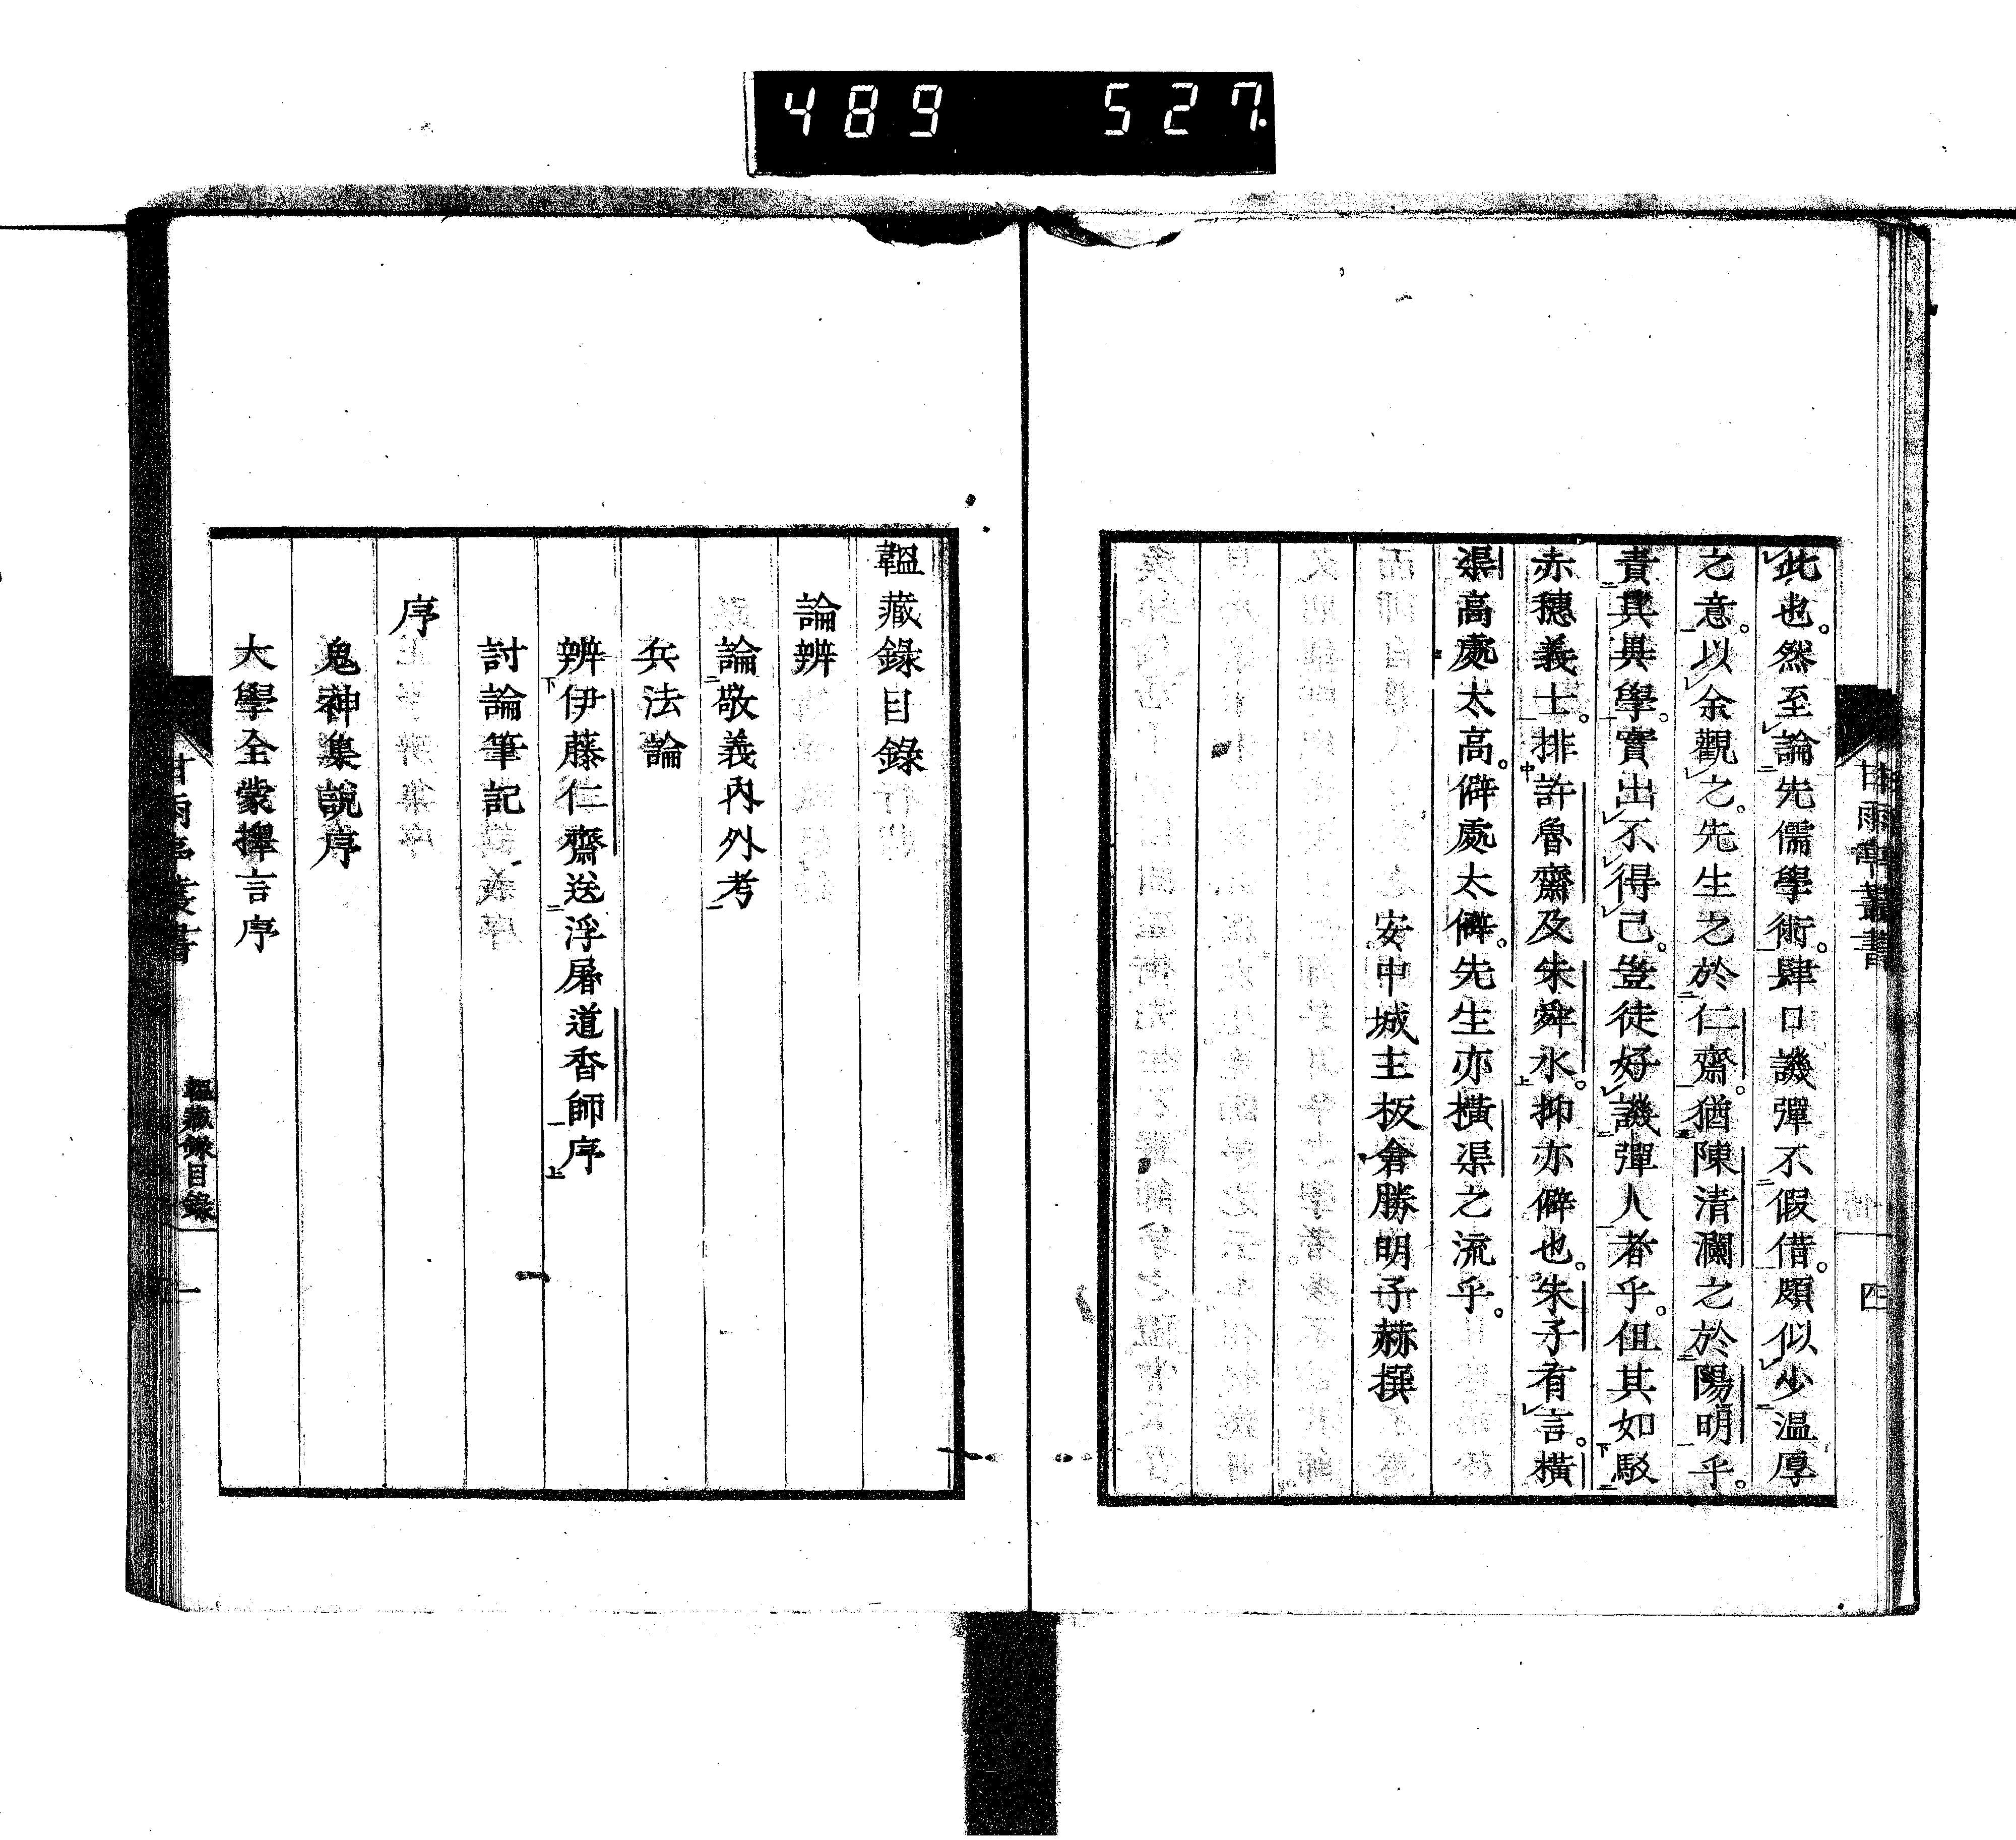 489 527.
此也。然至論先儒學術。肆口譏彈不假借。頗似少溫厚
之意。以余觀之。先生之於仁齋。猶陳清瀾之於陽明乎。
責其異學。實出不得已。豈徒好譏彈人者乎。但其如駁
赤穗義士。排許魯齋及朱舜水。抑亦僻也。朱子有言。橫
渠高處太高。僻處太僻。先生亦橫渠之流乎。
安中城主板倉勝明子赫撰
甘雨亭叢書
四
韞藏錄目錄
論辨
論敬義內外考
兵法論
辨伊藤仁齋送浮屠道香師序
討論筆記
序
鬼神集說序
大學全蒙擇言序
甘雨亭叢書
韞藏錄目錄
一